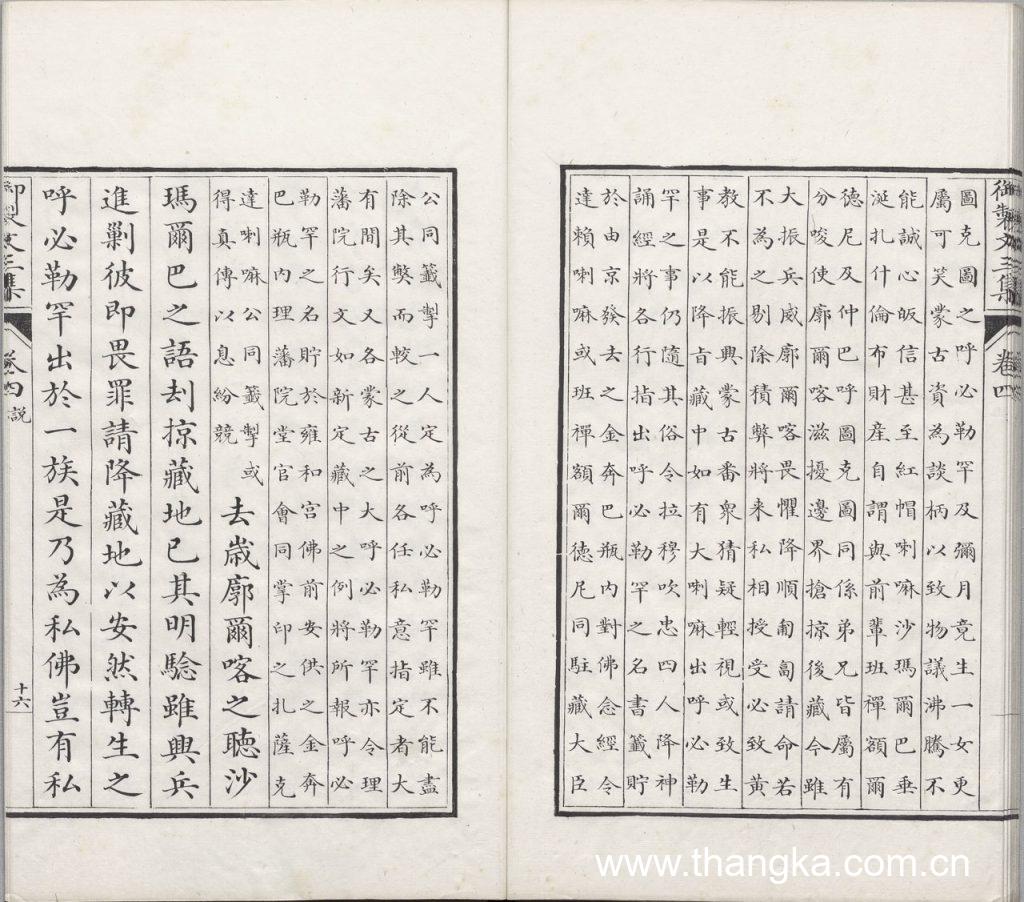 御製文三集 卷四
圖克圖之呼必勒罕及彌月竟生一女更
屬可笑蒙古資為談柄以致物議沸騰不
能誠心皈信甚至紅帽喇嘛沙瑪爾巴垂
涎扎什倫布財產自謂與前輩班禪額爾
德尼及仲巴呼圖克圖同係弟兄皆屬有
分唆使廓爾喀滋擾邊界搶掠後藏今雖
大振兵威廓爾喀畏懼降順匍匐請命若
不為之剔除積弊將来私相授受必致黃
教不能振興蒙古番衆猜疑輕視或致生
事是以降旨藏中如有大喇嘛出呼必勒
罕之事仍隨其俗令拉穆吹忠四人降神
誦經將各行指出呼必勒罕之名書籤貯
於由京發去之金奔巴瓶內對佛念經令
達賴喇嘛或班禪額爾德尼同駐藏大臣
公同籤掣一人定為呼必勒罕雖不能盡
除其弊而較之從前各任私意指定者大
有間矣又各蒙古之大呼必勒罕亦令理
藩院行文如新定藏中之例將所報呼必
勒罕之名貯於雍和宮佛前安供之金奔
巴瓶內理藩院堂官會同掌印之扎薩克
達喇嘛公同籤掣或
得真傳以息紛競
去歲廓爾喀之聽沙
瑪爾巴之語刦掠藏地已其明驗雖興兵
進剿彼即畏罪請降藏地以安然轉生之
呼必勒罕出於一族是乃為私佛豈有私
御製文三集 卷四 説 十六
www.thangka.com.cn